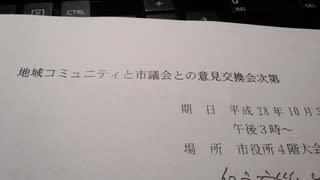 地域コミュニティと市議会との意見交換会次第
期 日 平成28年10月3
午後3時～
場 所 市役所4階大会